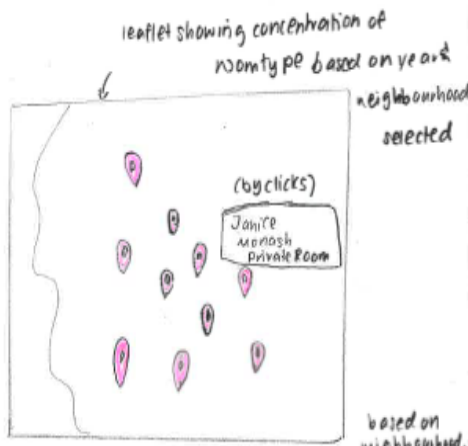 leaflet showing concentration of
roomtype based on year &
neighbourhood
selected
(by clicks)
Janice
Monash
Private Room
based on
neighbourhood